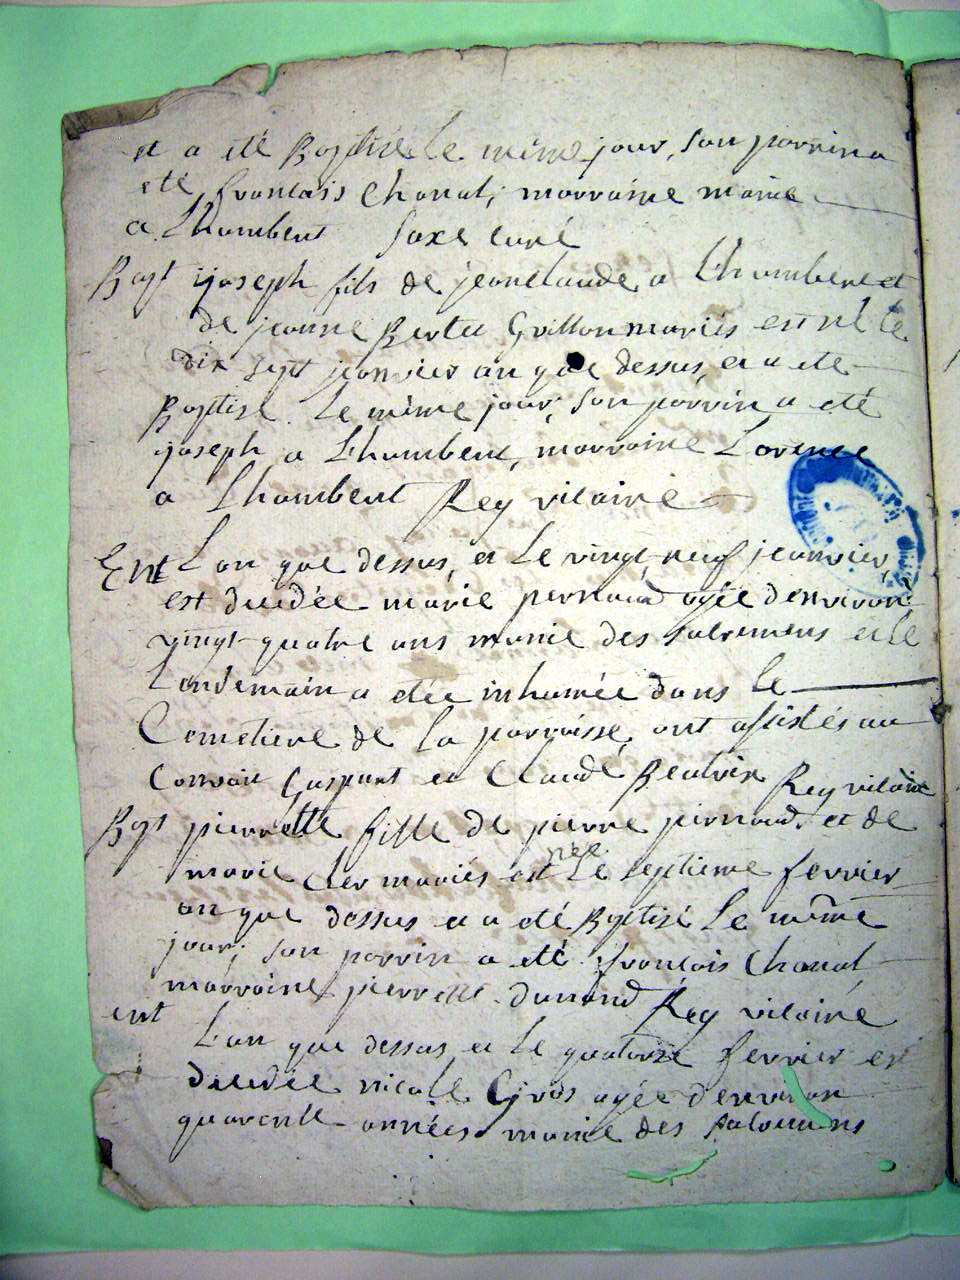 et a été Baptisé le même jour, son parrin a
été francais Chanal, marraine marie
a Lhambert Saxe curé
Bapt joseph fils de jeanclaude a Lhambert et
de jeanne Bertet Grillon mariés est né le
dix sept janvier an que dessus, et a été
Baptisé le même jour, son parrin a été
joseph a Lhambert, marraine Lorence
a Lhambert Rey vicaire
Ent L'an que dessus, et le vingt neuf jeanvier,
est décédée marie pernaud agée d'environ
vingt-quatre ans munie des sacremens et le
Lendemain a étée inhumée dans le
Cemetiere de la parroisse, ont assistés au
Convoit Gaspart et Claude Beatrix Rey vicaire
Bapt pierrette fille de pierre pernaud et de
marie Cler mariés est née le septieme fevrier
an que dessus et a été Baptisé le même
jour, son parrin a été francais Chanal
marraine pierrette dunand Rey vicaire
ent L'an que dessus, et le quatorze fevrier est
décédée nicole Gros agée d'environ
quarente années munie des sacremens